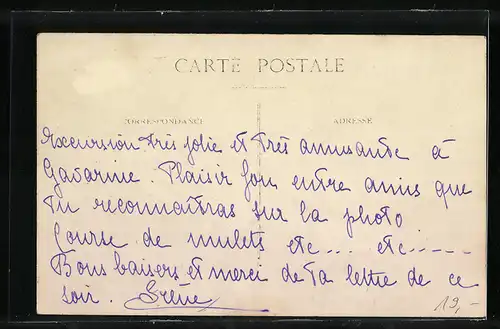 CARTE POSTALE
CORRESPONDANCE
ADRESSE
Excursion très jolie et très amusante à
Gavarnie. Plaisir fou entre amis que
tu reconnaîtras sur la photo
Course de mulets etc... etc-----
Bons baisers et merci de ta lettre de ce
soir. Irène
19,-